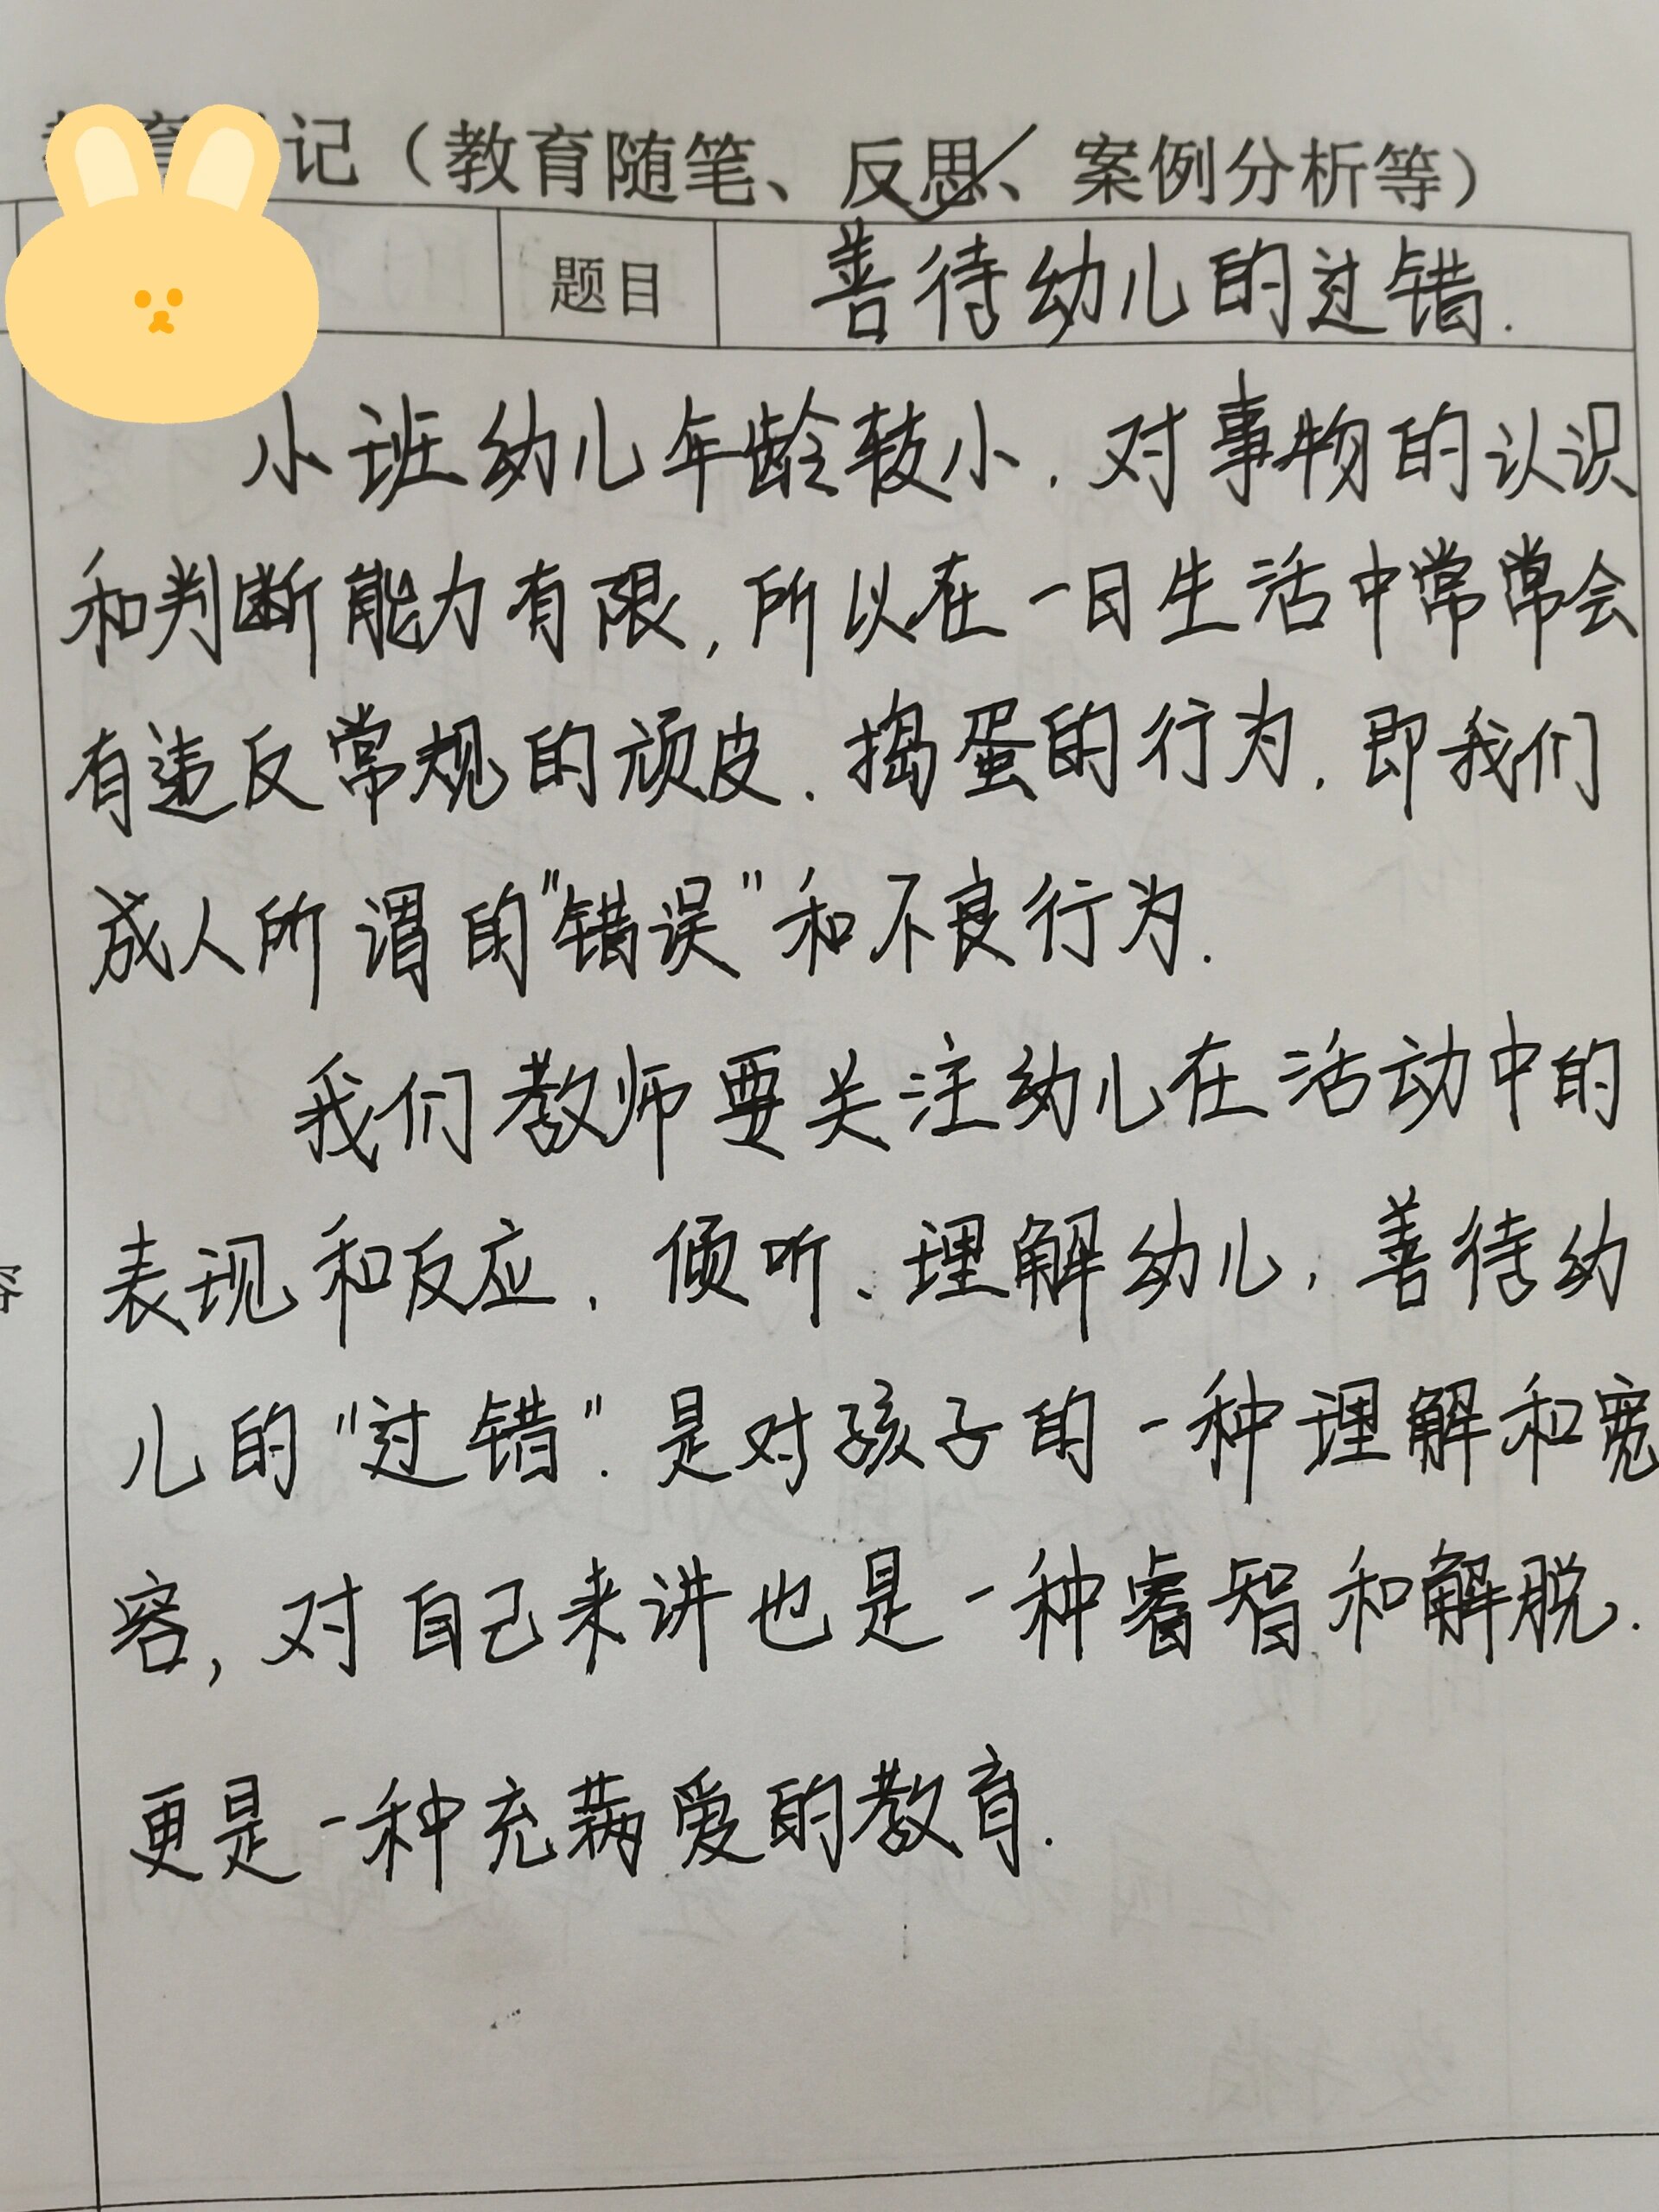 记（教育随笔、反思、案例分析等）
题目 善待幼儿的过错.
小班幼儿年龄较小.对事物的认识
和判断能力有限,所以在一日生活中常常会
有违反常规的顽皮.捣蛋的行为.即我们
成人所谓的"错误"和不良行为.
我们教师要关注幼儿在活动中的
表现和反应.倾听、理解幼儿,善待幼
儿的"过错".是对孩子的一种理解和宽
容,对自己来讲也是一种睿智和解脱.
更是一种充满爱的教育.